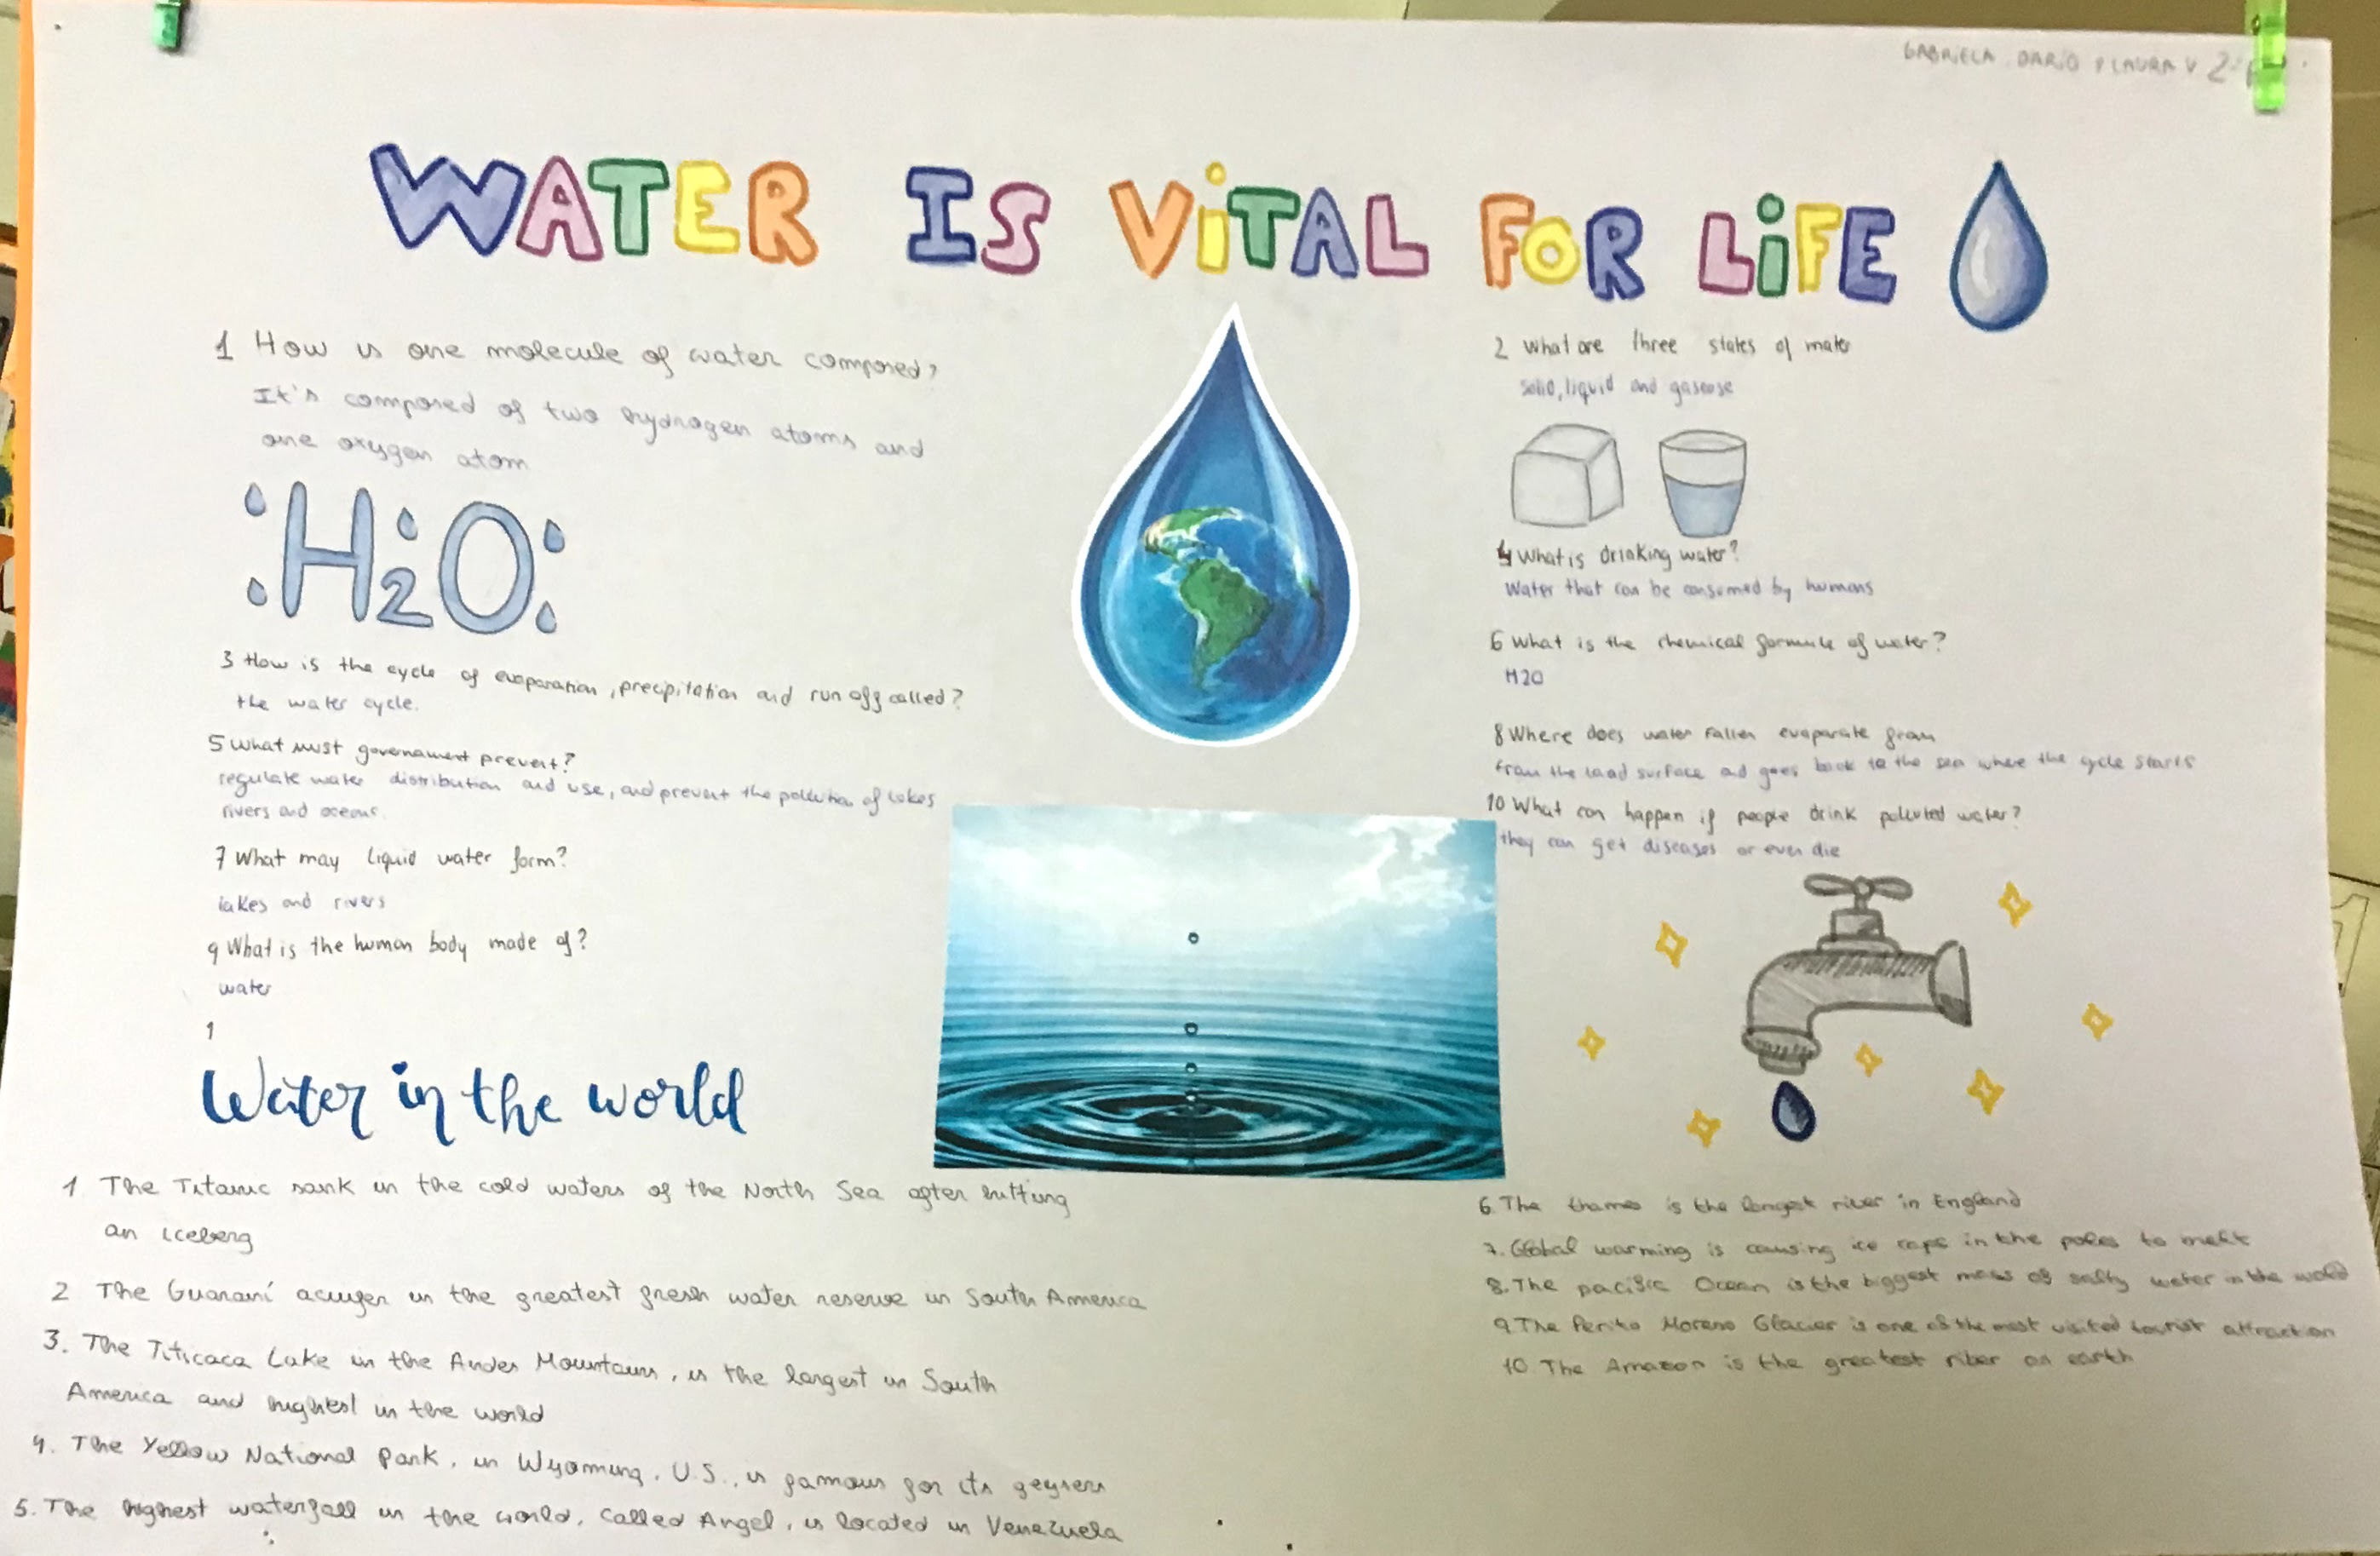 GABRIELA, DARÍO Y LAURA V 2º
WATER IS VITAL FOR LIFE
1 How is one molecule of water composed?
It's composed of two hydrogen atoms and
one oxygen atom
H2O
3 How is the cycle of evaporation, precipitation and run off called?
the water cycle.
5 What must governament prevent?
regulate water distribution and use, and prevent the pollution of lakes
rivers and oceans.
7 What may liquid water form?
lakes and rivers
9 What is the human body made of?
water
1
2 What are three states of mater
solid, liquid and gaseose
4 What is drinking water?
Water that can be consumed by humans
6 What is the chemical formule of water?
H2O
8 Where does water fallen evaporate from
from the land surface and goes back to the sea where the cycle starts
10 What can happen if people drink polluted water?
they can get diseases or even die
Water in the world
1 The Titanic sank in the cold waters of the North Sea after hitting
an iceberg
2 The Guaraní acuifer in the greatest fresh water reserve in South America
3. The Titicaca Lake in the Andes Mountains, is the largest in South
America and highest in the world
4. The Yellow National Park, in Wyoming, U.S., is famous for its geysers
5. The highest waterfall in the world, called Angel, is located in Venezuela
6. The thames is the longest river in England
7. Global warming is causing ice caps in the poles to melt
8. The pacific Ocean is the biggest mass of salty water in the world
9. The Perito Moreno Glacier is one of the most visited tourist attraction
10. The Amazon is the greatest riber on earth